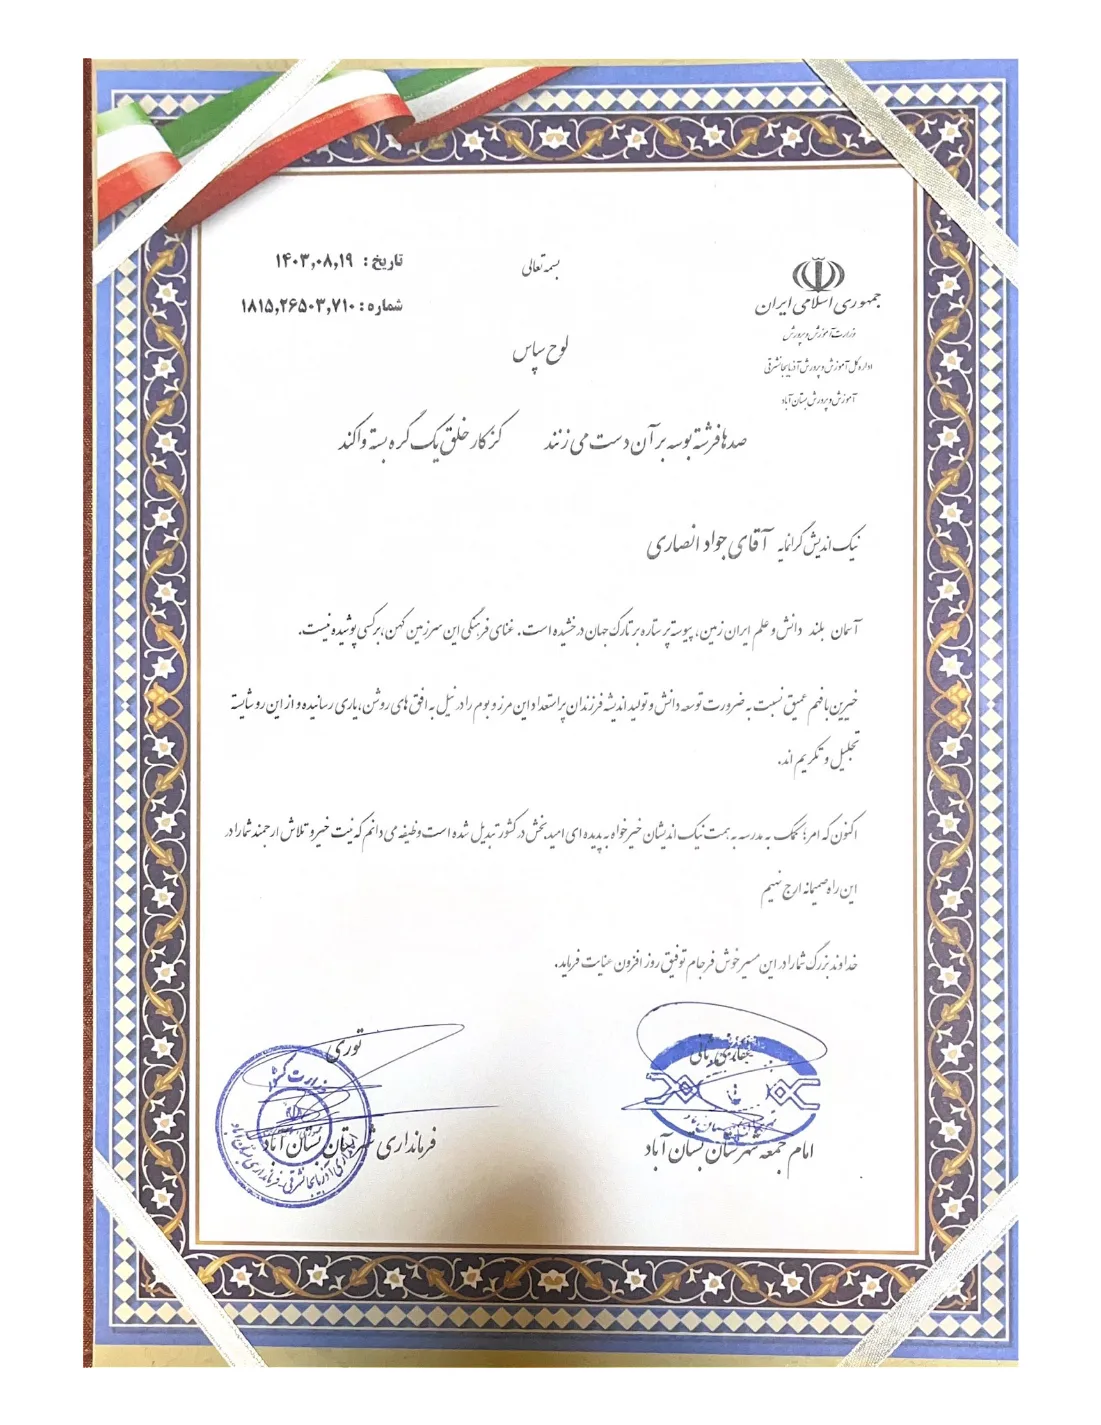 بسمه تعالی
تاریخ : ۱۴۰۳,۰۸,۱۹
شماره : ۱۸۱۵,۲۶۵۰۳,۷۱۰
جمهوری اسلامی ایران
وزارت آموزش و پرورش
اداره کل آموزش و پرورش آذربایجانشرقی
آموزش و پرورش بستان آباد
لوح سپاس
صدها فرشته بوسه بر آن دست می زنند کز کار خلق یک گره بسته وا کند
نیک اندیش گرانمایه آقای جواد انصاری
آسمان بلند دانش و علم ایران زمین، پیوسته پر ستاره بر تارک جهان درخشیده است. غنای فرهنگی این سرزمین کهن، بر کسی پوشیده نیست.
خیرین با فهم عمیق نسبت به ضرورت توسعه دانش و تولید اندیشه فرزندان پر استعداد این مرز و بوم را در نیل به افق های روشن، یاری رسانیده و از این رو شایسته
تجلیل و تکریم اند.
اکنون که امر؛ کمک به مدرسه به همت نیک اندیشان خیرخواه به پدیده ای امید بخش در کشور تبدیل شده است وظیفه می دانم که نیت خیر و تلاش ارجمند شما را در
این راه صمیمانه ارج نهیم
خداوند بزرگ شما را در این مسیر خوش فرجام توفیق روز افزون عنایت فرماید.
نوری
فرمانداری شهرستان بستان آباد
امام جمعه شهرستان بستان آباد
وزارت کشور